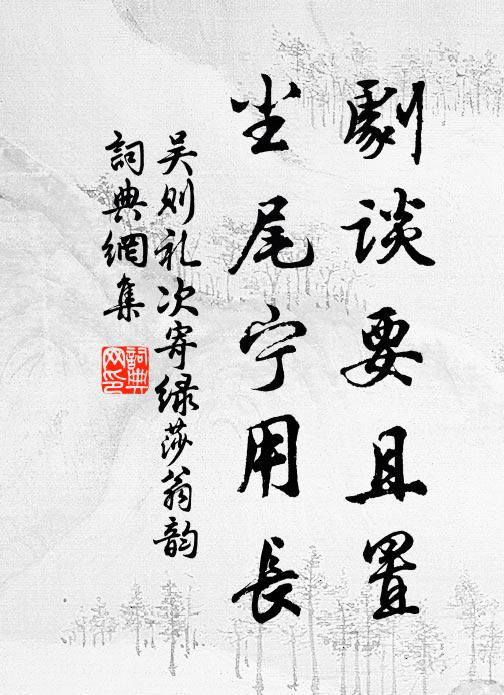 劇談要且置
尘尾宁用長
吴则礼次寄绿莎翁韵
詞典網集
詞典网印